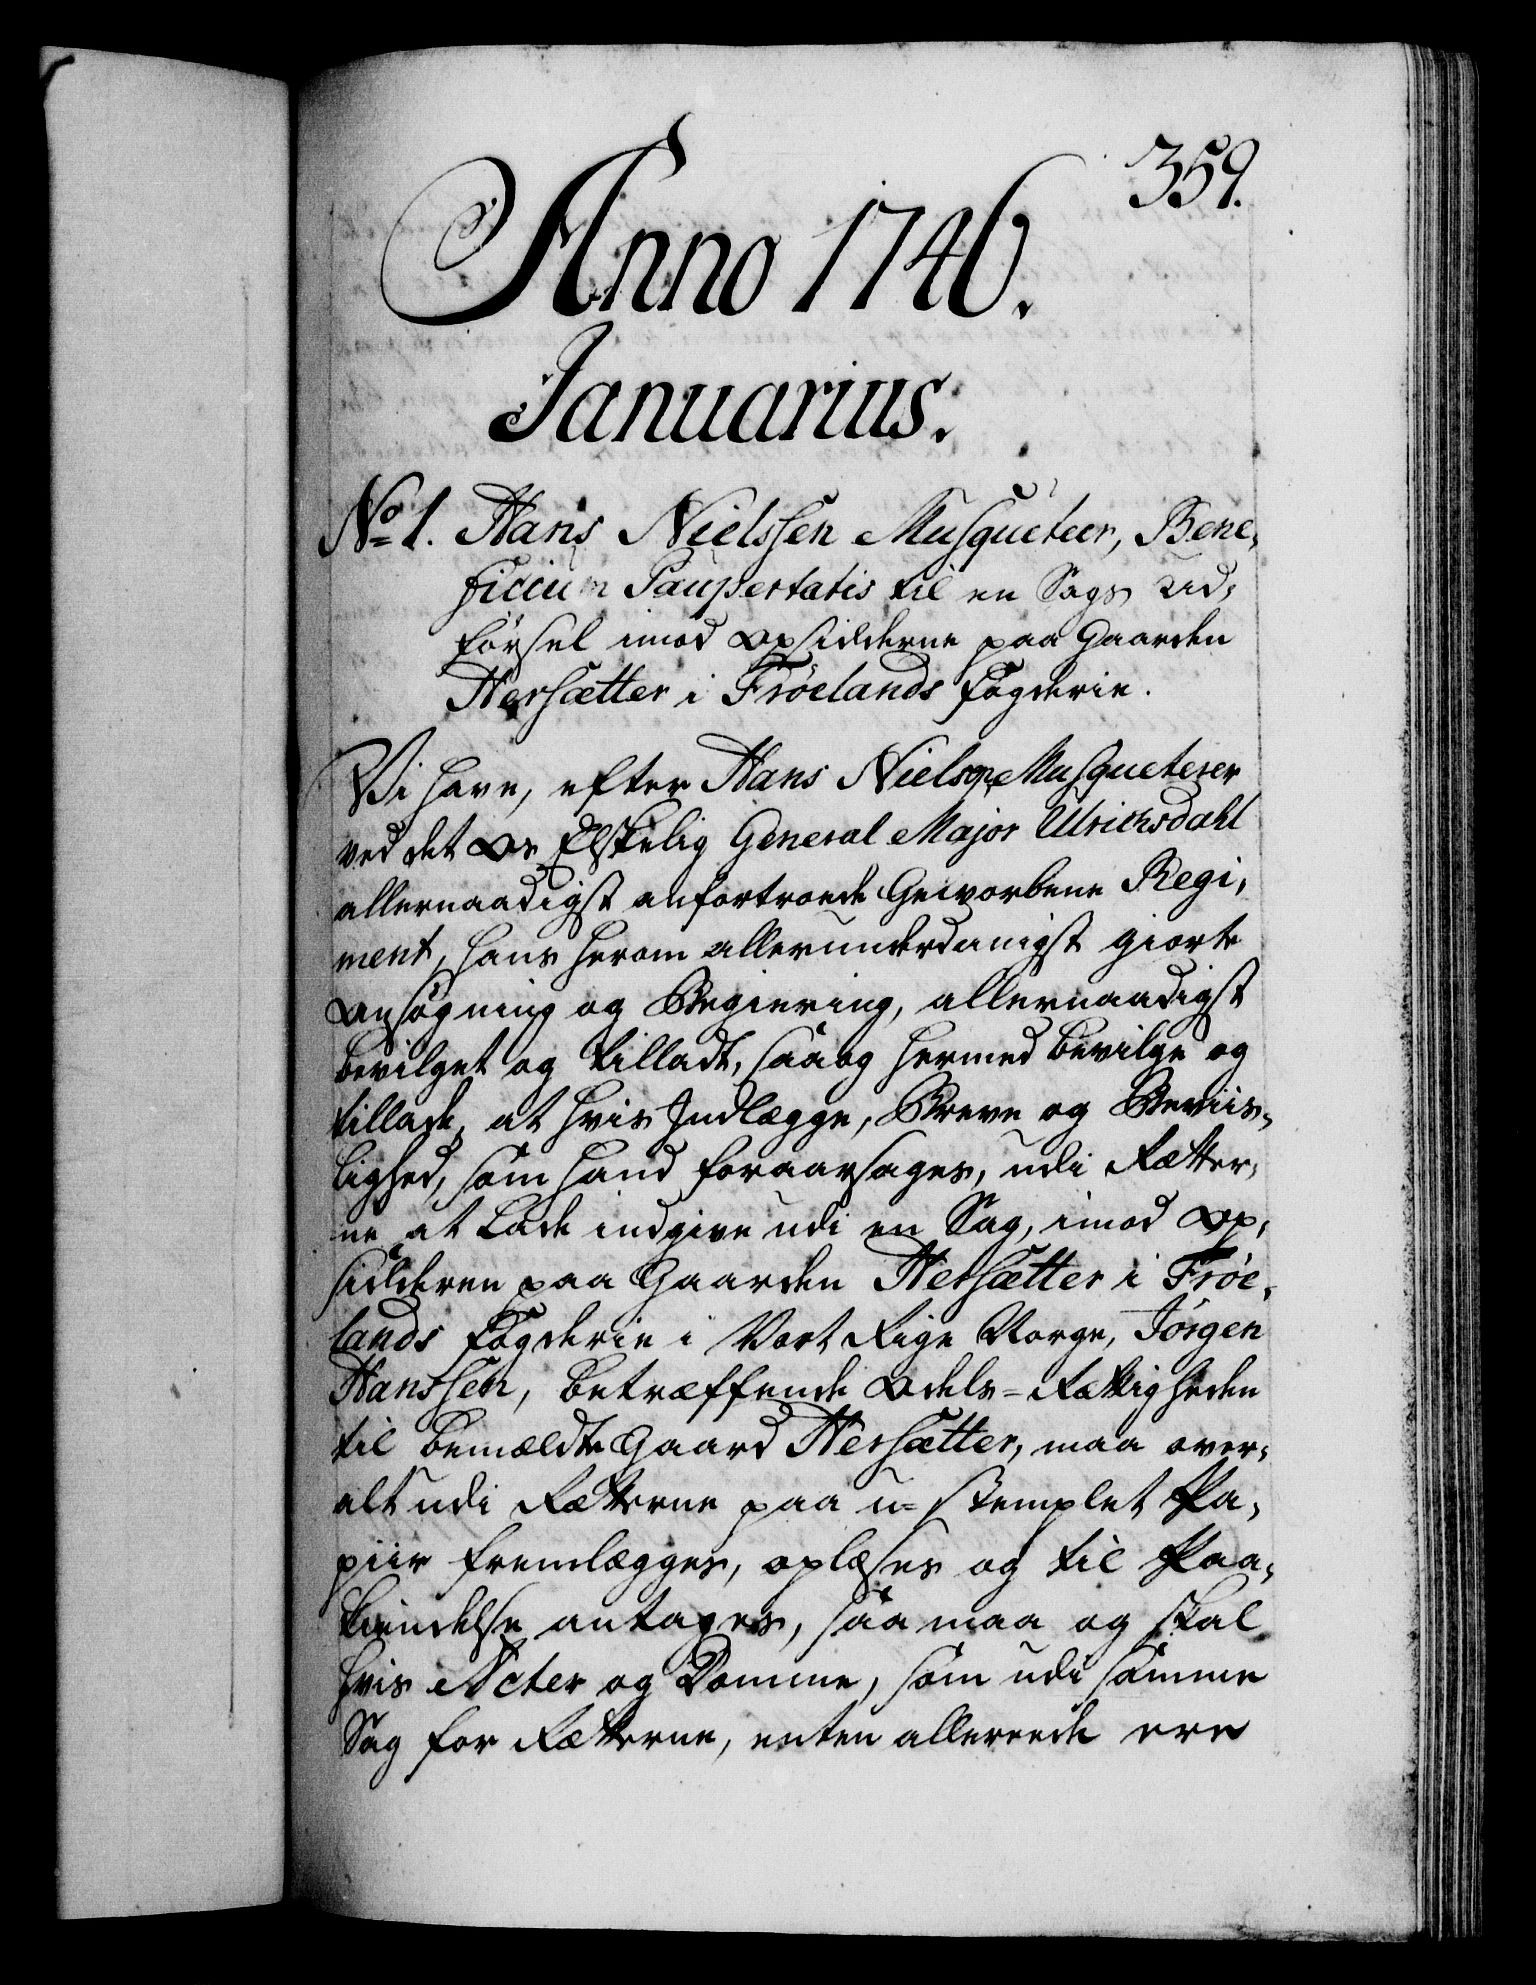 359.
Anno 1746.
Januarius.
No 1. Hans Nielssen Musqueteer, Bene,
ficium Paupertatis til en Sags Ud,
førsel imod Opsidderne paa Gaarden
Hersætter i Frøelands Fogderie.
Vi have, efter Hans Nielsøn Musqueterer
ved det Os Elskelig General Major Ulrichsdahl
allernaadigst anfortroede Gevorbene Regi,
ment, hans herom allerunderdanigst giorte
Ansøgning og Begiering, allernaadigst
bevilget og tilladt, saa og hermed bevilge og
tillade, at hvis Indlægge, Breve og Beviis,
lighed, som hand foraarsages, udi Rætter,
ne at lade indgive udi en Sag, imod Op,
sidderen paa Gaarden Hersætter i Frøe,
lands Fogderie i Vort Rige Norge, Jørgen
Hanssen, betræffende Odels-Rættigheden
til bemældte Gaard Hersætter, maa over,
alt udi Rætterne paa u-stemplet Pa,
piir fremlægges, oplæses og til Paa,
kiendelse antages, saa maa og skal
hvis Acter og Domme, som udi samme
Sag for Rætterne, enten allereede ere